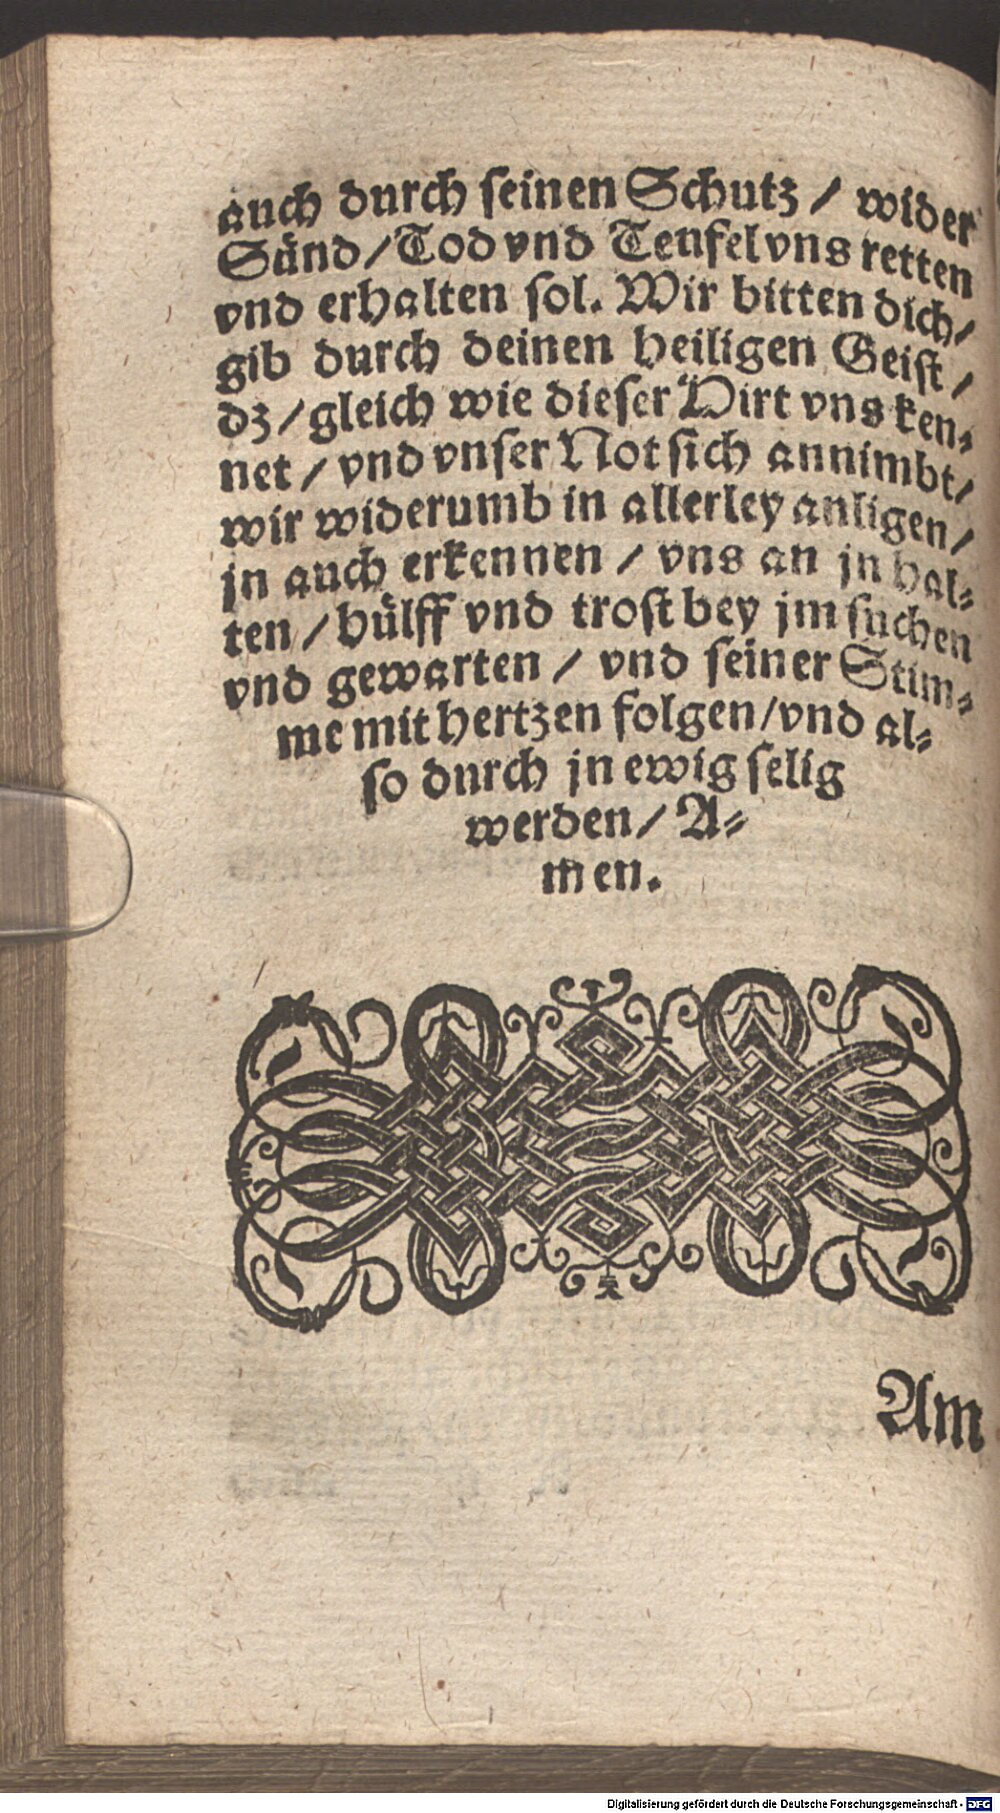 auch durch seinen Schutz / wider
Sünd / Tod vnd Teufel vns retten
vnd erhalten sol. Wir bitten dich /
gib durch deinen heiligen Geist /
dz / gleich wie dieser Hirt vns ken⸗
net / vnd vnser Not sich annimbt /
wir widerumb in allerley anligen /
jn auch erkennen / vns an jn hal⸗
ten / hülff vnd trost bey jm suchen
vnd gewarten / vnd seiner Stim⸗
me mit hertzen folgen / vnd al⸗
so durch jn ewig selig
werden / A⸗
men.
Am
Digitalisierung gefördert durch die Deutsche Forschungsgemeinschaft - DFG